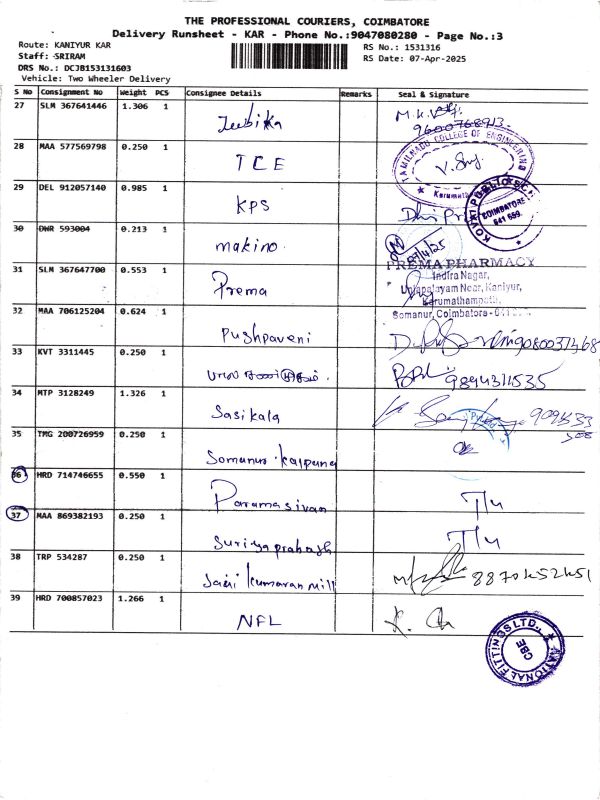 THE PROFESSIONAL COURIERS, COIMBATORE
Delivery Runsheet - KAR - Phone No.:9047080280 - Page No.:3
Route: KANIYUR KAR
RS No.: 1531316
Staff: SRIRAM
RS Date: 07-Apr-2025
DRS No.: DCJB153131603
Vehicle: Two Wheeler Delivery
S No Consignment No Weight PCS Consignee Details Remarks Seal & Signature
27 SLM 367641446 1.306 1 Jeebika
9600768913
28 MAA 577569798 0.250 1 TCE
TAMILNADU COLLEGE OF ENGINEERING
29 DEL 912057140 0.985 1 KPS
COIMBATORE
641 659
30 DWR 593004 0.213 1 makino
31 SLM 367647700 0.553 1 Prema
PREMA PHARMACY
Indira Nagar,
Unjapalayam Near, Kaniyur,
Karumathampatti,
Somanur, Coimbatore -
32 MAA 706125204 0.624 1 Pushpaveni
33 KVT 3311445 0.250 1
9894311535
34 MTP 3128249 1.326 1 Sasikala
35 TMG 200726959 0.250 1 Somanur Kalpana
36 HRD 714746655 0.550 1 Paramasivan T/u
37 MAA 869382193 0.250 1 Suriyaprakash T/u
38 TRP 534287 0.250 1 kumaran mill
39 HRD 700857023 1.266 1 NFL
NATIONAL FITTINGS LTD.,
CBE